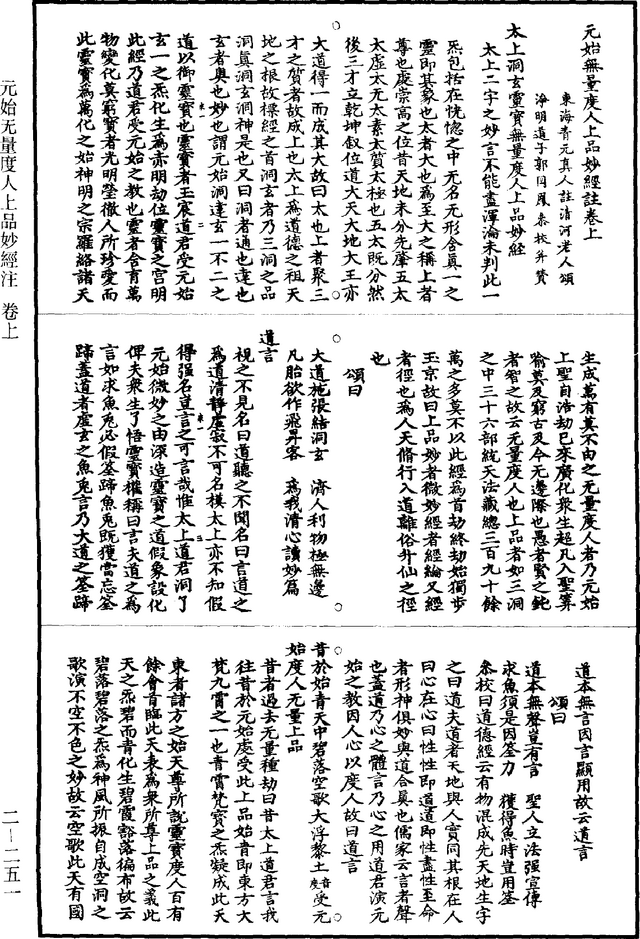 元始無量度人上品妙經註卷上
東海青元真人註清河老人頌
淨明道子郭岡鳳參校并贊
太上洞玄靈寶無量度人上品妙經
太上二字之妙言不能盡渾淪未判此一
炁包括在恍惚之中无名无形含真一之
靈即其象也太者大也為至大之稱上者
尊也處崇高之位昔天地未分先肇五太
太虛太无太素太質太極也五太既分然
後三才立乾坤叙位道大天大地大王亦
大道得一而成其大故曰太也上者聚三
才之質者故成上也太上為道德之祖天
地之根故標經之首洞玄者乃三洞之品
洞真洞玄洞神是也又曰洞者通也達也
玄者奧也妙也謂元始洞達玄一不二之
道以御靈寶也靈寶者玉宸道君受元始
玄一之炁化生為赤明劫位靈寶之宮明
此經乃道君受元始之教也靈者含育萬
物變化莫窮寶者光明瑩徹人所珍愛而
此靈寶為萬化之始神明之宗羅絡諸天
生成萬有莫不由之无量度人者乃元始
上聖自浩劫已來廣化衆生超凡入聖筭
喻莫及窮古及今无邊際也愚者賢之鈍
者智之故云无量度人也上品者如三洞
之中三十六部統天法藏總三百九十餘
萬之多莫不以此經為首劫終劫始獨步
玉京故曰上品妙者微妙經者經綸又經
者徑也為人天脩行入道離俗升仙之徑
也
頌曰
大道施張結洞玄　濟人利物極無邊
凡胎欲作飛昇客　為我清心讀妙篇
道言
視之不見名曰道聽之不聞名曰言道之
為道清靜虛寂不可名模太上亦不知假
得强名豈言之可言哉惟太上道君洞了
元始微妙之由深造靈寶之道假象設化
俾夫衆生了悟靈寶權稱曰言夫道之為
言如求魚兔必假筌蹄魚兔既獲當忘筌
蹄蓋道者虛玄之魚兔言乃大道之筌蹄
道本無言因言顯用故云道言
頌曰
道本無聲豈有言　聖人立法强宣傳
求魚須是因筌力　獲得魚時豈用筌
參校曰道德經云有物混成先天地生字
之曰道夫道者天地與人實同其根在人
曰心在心曰性性即道道即性盡性至命
者形神俱妙與道合真也儒家云言者聲
也蓋道乃心之體言乃心之用道君演元
始之教因人心以度人故曰道言
昔於始青天中碧落空歌大浮黎土受元
始度人无量上品
昔者過去无量種劫曰昔太上道君言我
往昔於元始處受此上品始青即東方大
梵九霄之一也青霄梵寶之炁凝成此天
東者諸方之始天尊所說靈寶度人百有
餘會首臨此天表為衆所尊上品之義此
天之炁碧而青化生碧霞豁落徧布故云
碧落碧落之炁為神風所振自成空洞之
歌演不空不色之妙故云空歌此天有國
元始无量度人上品妙經注　卷上
二－二五一